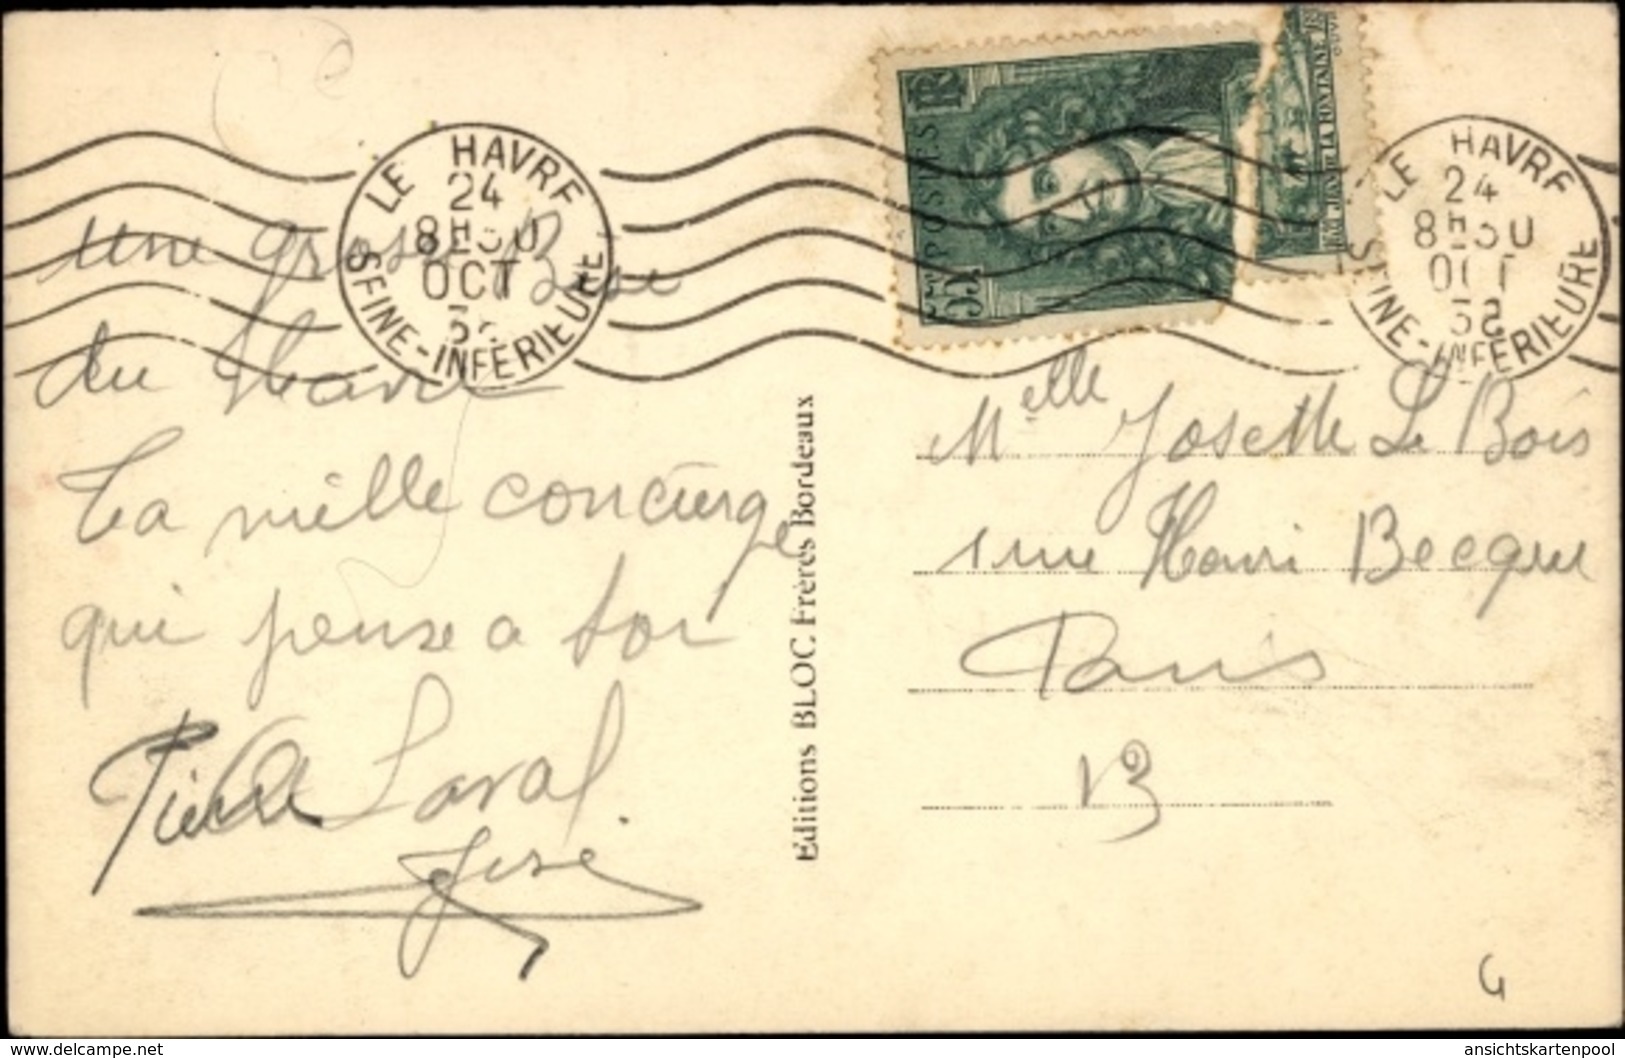 LE HAVRE
24
8H30
OCT
38
SEINE-INFERIEURE
LE HAVRE
24
8H30
OCT
38
SEINE-INFERIEURE
POSTES
RF
55c
JEAN DE LA FONTAINE
une grosse Bise
du Havre
Ta vielle concierge
qui pense a toi
Pierre Laval
José
Editions BLOC Frères Bordeaux
Melle Josette Le Bois
1 rue Henri Becque
Paris
13
G
delcampe.net
ansichtskartenpool